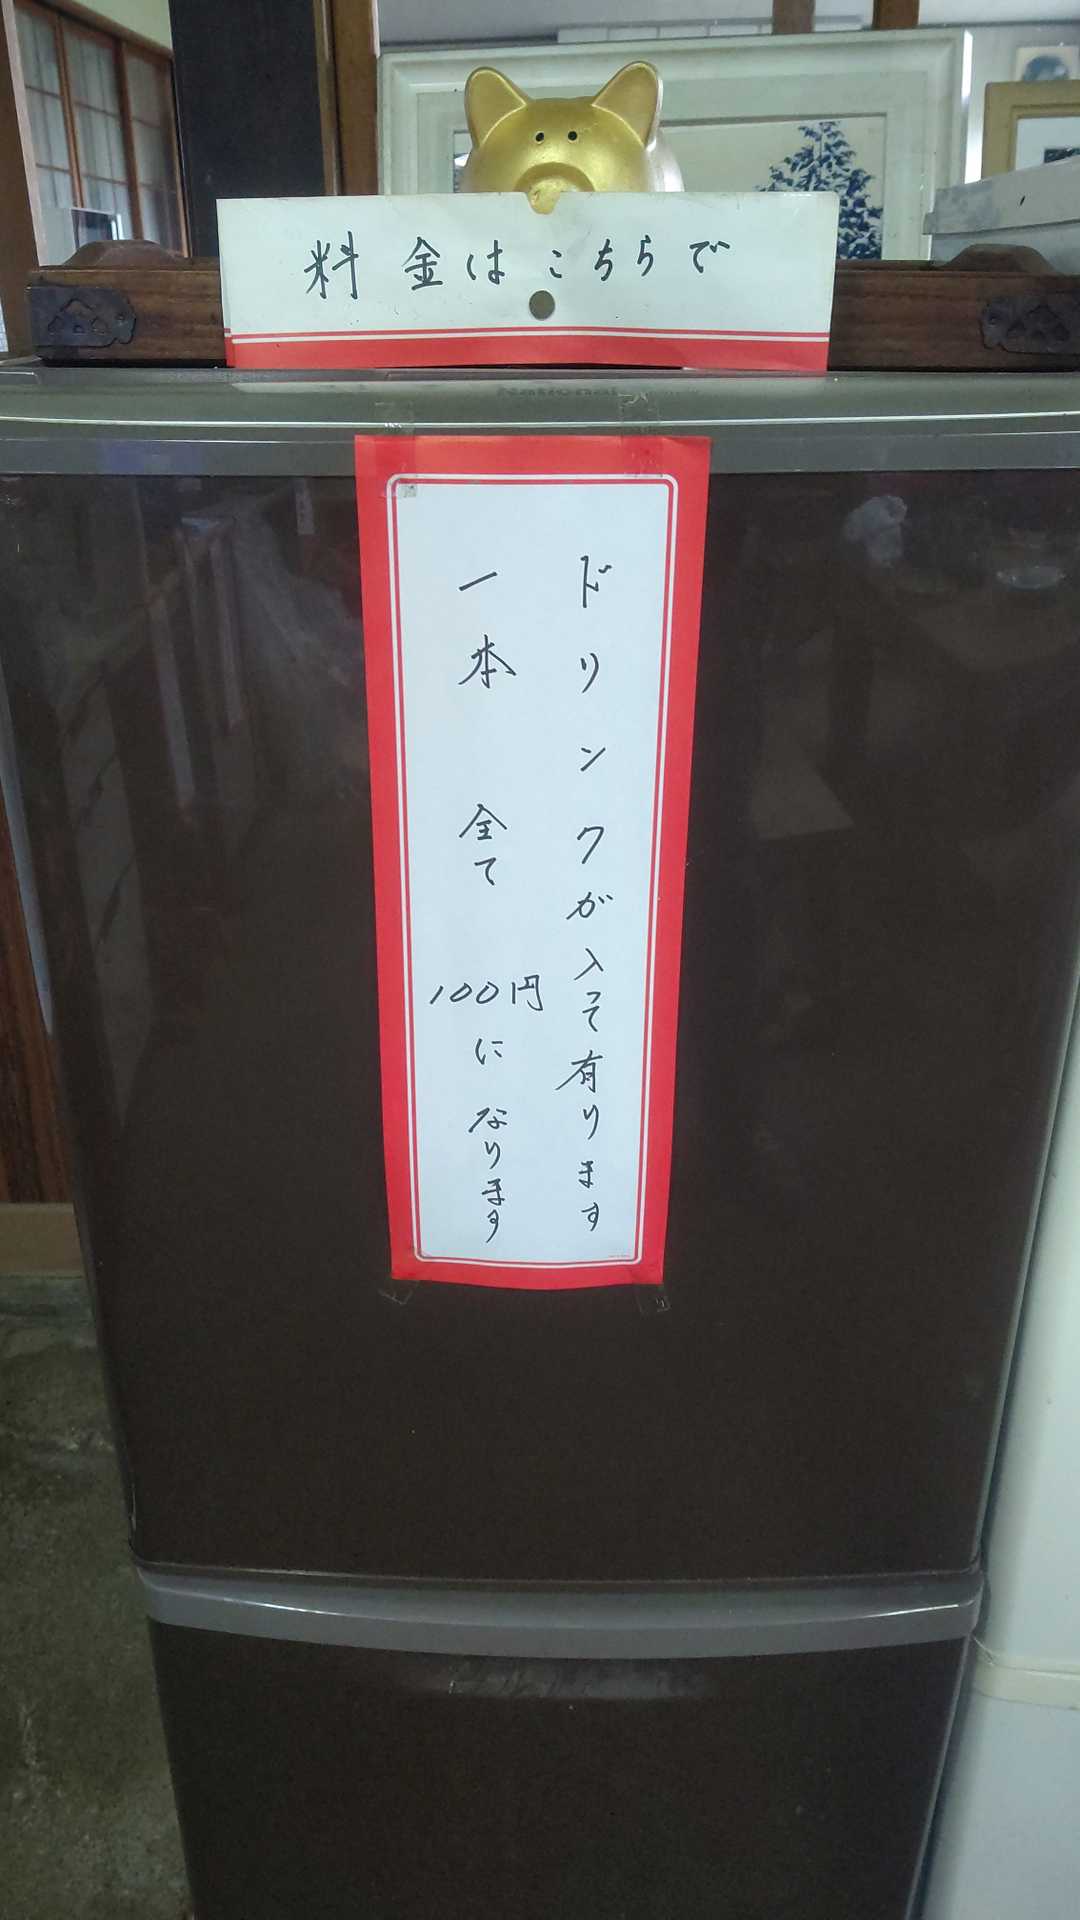 料金はこちらで
ドリンクが入って有ります
一本 全て 100円になります